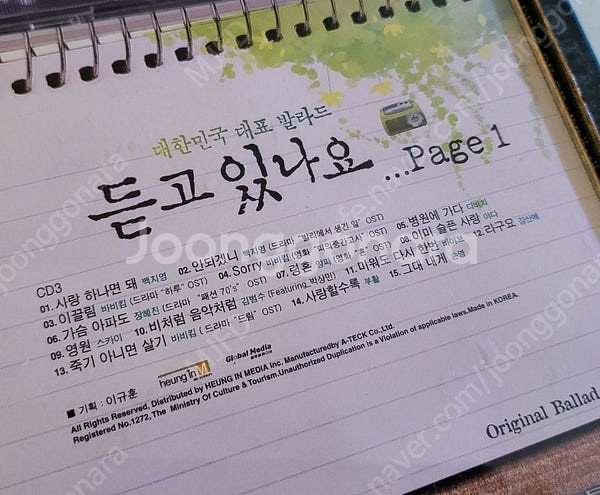 대한민국 대표 발라드
듣고 있나요 ...Page 1
CD3
01. 사랑 하나면 돼 백지영 02. 안되겠니 백지영 (드라마 "발리에서 생긴 일" OST)
03. 이끌림 바비킴 (드라마 "하루" OST) 04. Sorry 바비킴 (영화 OST) 05. 병원에 가다
06. 가슴 아파도 장혜진 (드라마 "패션 70's" OST) 07. 령혼 양파 (영화 OST) 08. 이미 슬픈 사랑 야다
09. 영원 스카이 10. 비처럼 음악처럼 김범수 (Featuring_박상민) 11. 미워도 다시 한번 바이브 12. 라구요 강산에
13. 죽기 아니면 살기 바비킴 (드라마 "드림" OST) 14. 사랑할수록 부활 15. 그대 내게
heung in M
Global Media
■ 기획 : 이규훈
All Rights Reserved, Distributed by HEUNG IN MEDIA Inc. Manufacturedby A-TECK Co.,Ltd.
Registered No.1272,The Ministry Of Culture & Tourism.Unauthorized Duplication is a Violation of applicable laws.Made in KOREA.
Original Ballad
Joonggonara